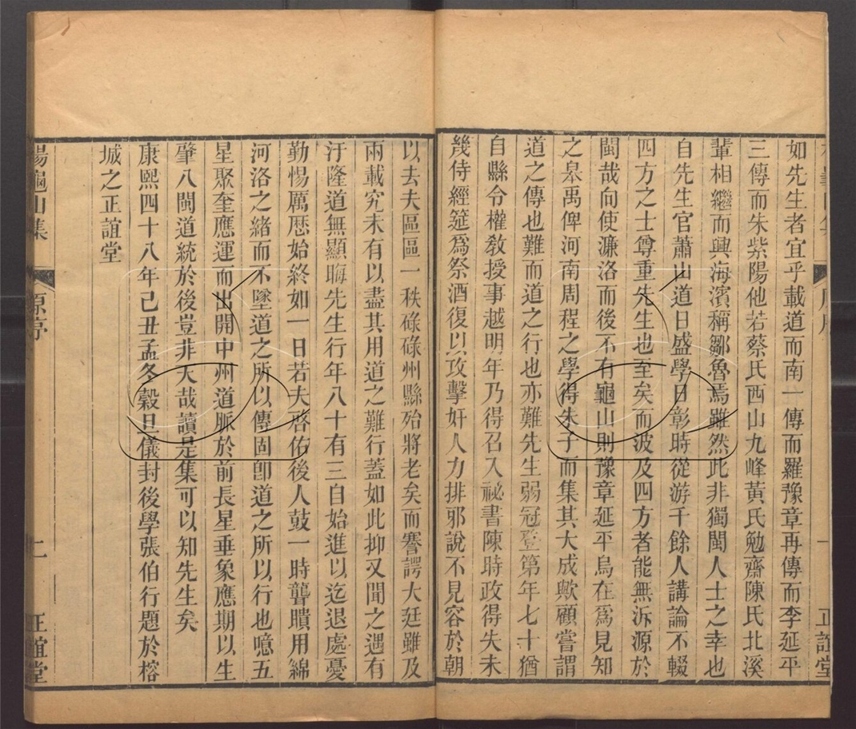 如先生者宜乎載道而南一傳而羅豫章再傳而李延平
三傳而朱紫陽他若蔡氏西山九峰黃氏勉齋陳氏北溪
輩相繼而興海濱稱鄒魯焉雖然此非獨閩人士之幸也
自先生官蕭山道日盛學日彰時從游千餘人講論不輟
四方之士尊重先生也至矣而波及四方者能無泝源於
閩哉向使濂洛而後不有龜山則豫章延平烏在爲見知
之臯禹俾河南周程之學得朱子而集其大成歟顧嘗謂
道之傳也難而道之行也亦難先生弱冠登第年七十猶
自縣令權教授事越明年乃得召入祕書陳時政得失未
幾侍經筵爲祭酒復以攻擊奸人力排邪說不見容於朝
以去夫區區一秩碌碌州縣殆將老矣而謇諤大廷雖及
兩載究未有以盡其用道之難行蓋如此抑又聞之遇有
汙隆道無顯晦先生行年八十有三自始進以迄退處憂
勤惕厲歷始終如一日若夫啓佑後人鼓一時聾瞶用綿
河洛之緒而不墜道之所以傳固卽道之所以行也噫五
星聚奎應運而出開中州道脈於前長星垂象應期以生
肇八閩道統於後豈非天哉讀是集可以知先生矣
康熙四十八年己丑孟冬穀旦儀封後學張伯行題於榕
城之正誼堂
楊龜山集 原序 二 正誼堂